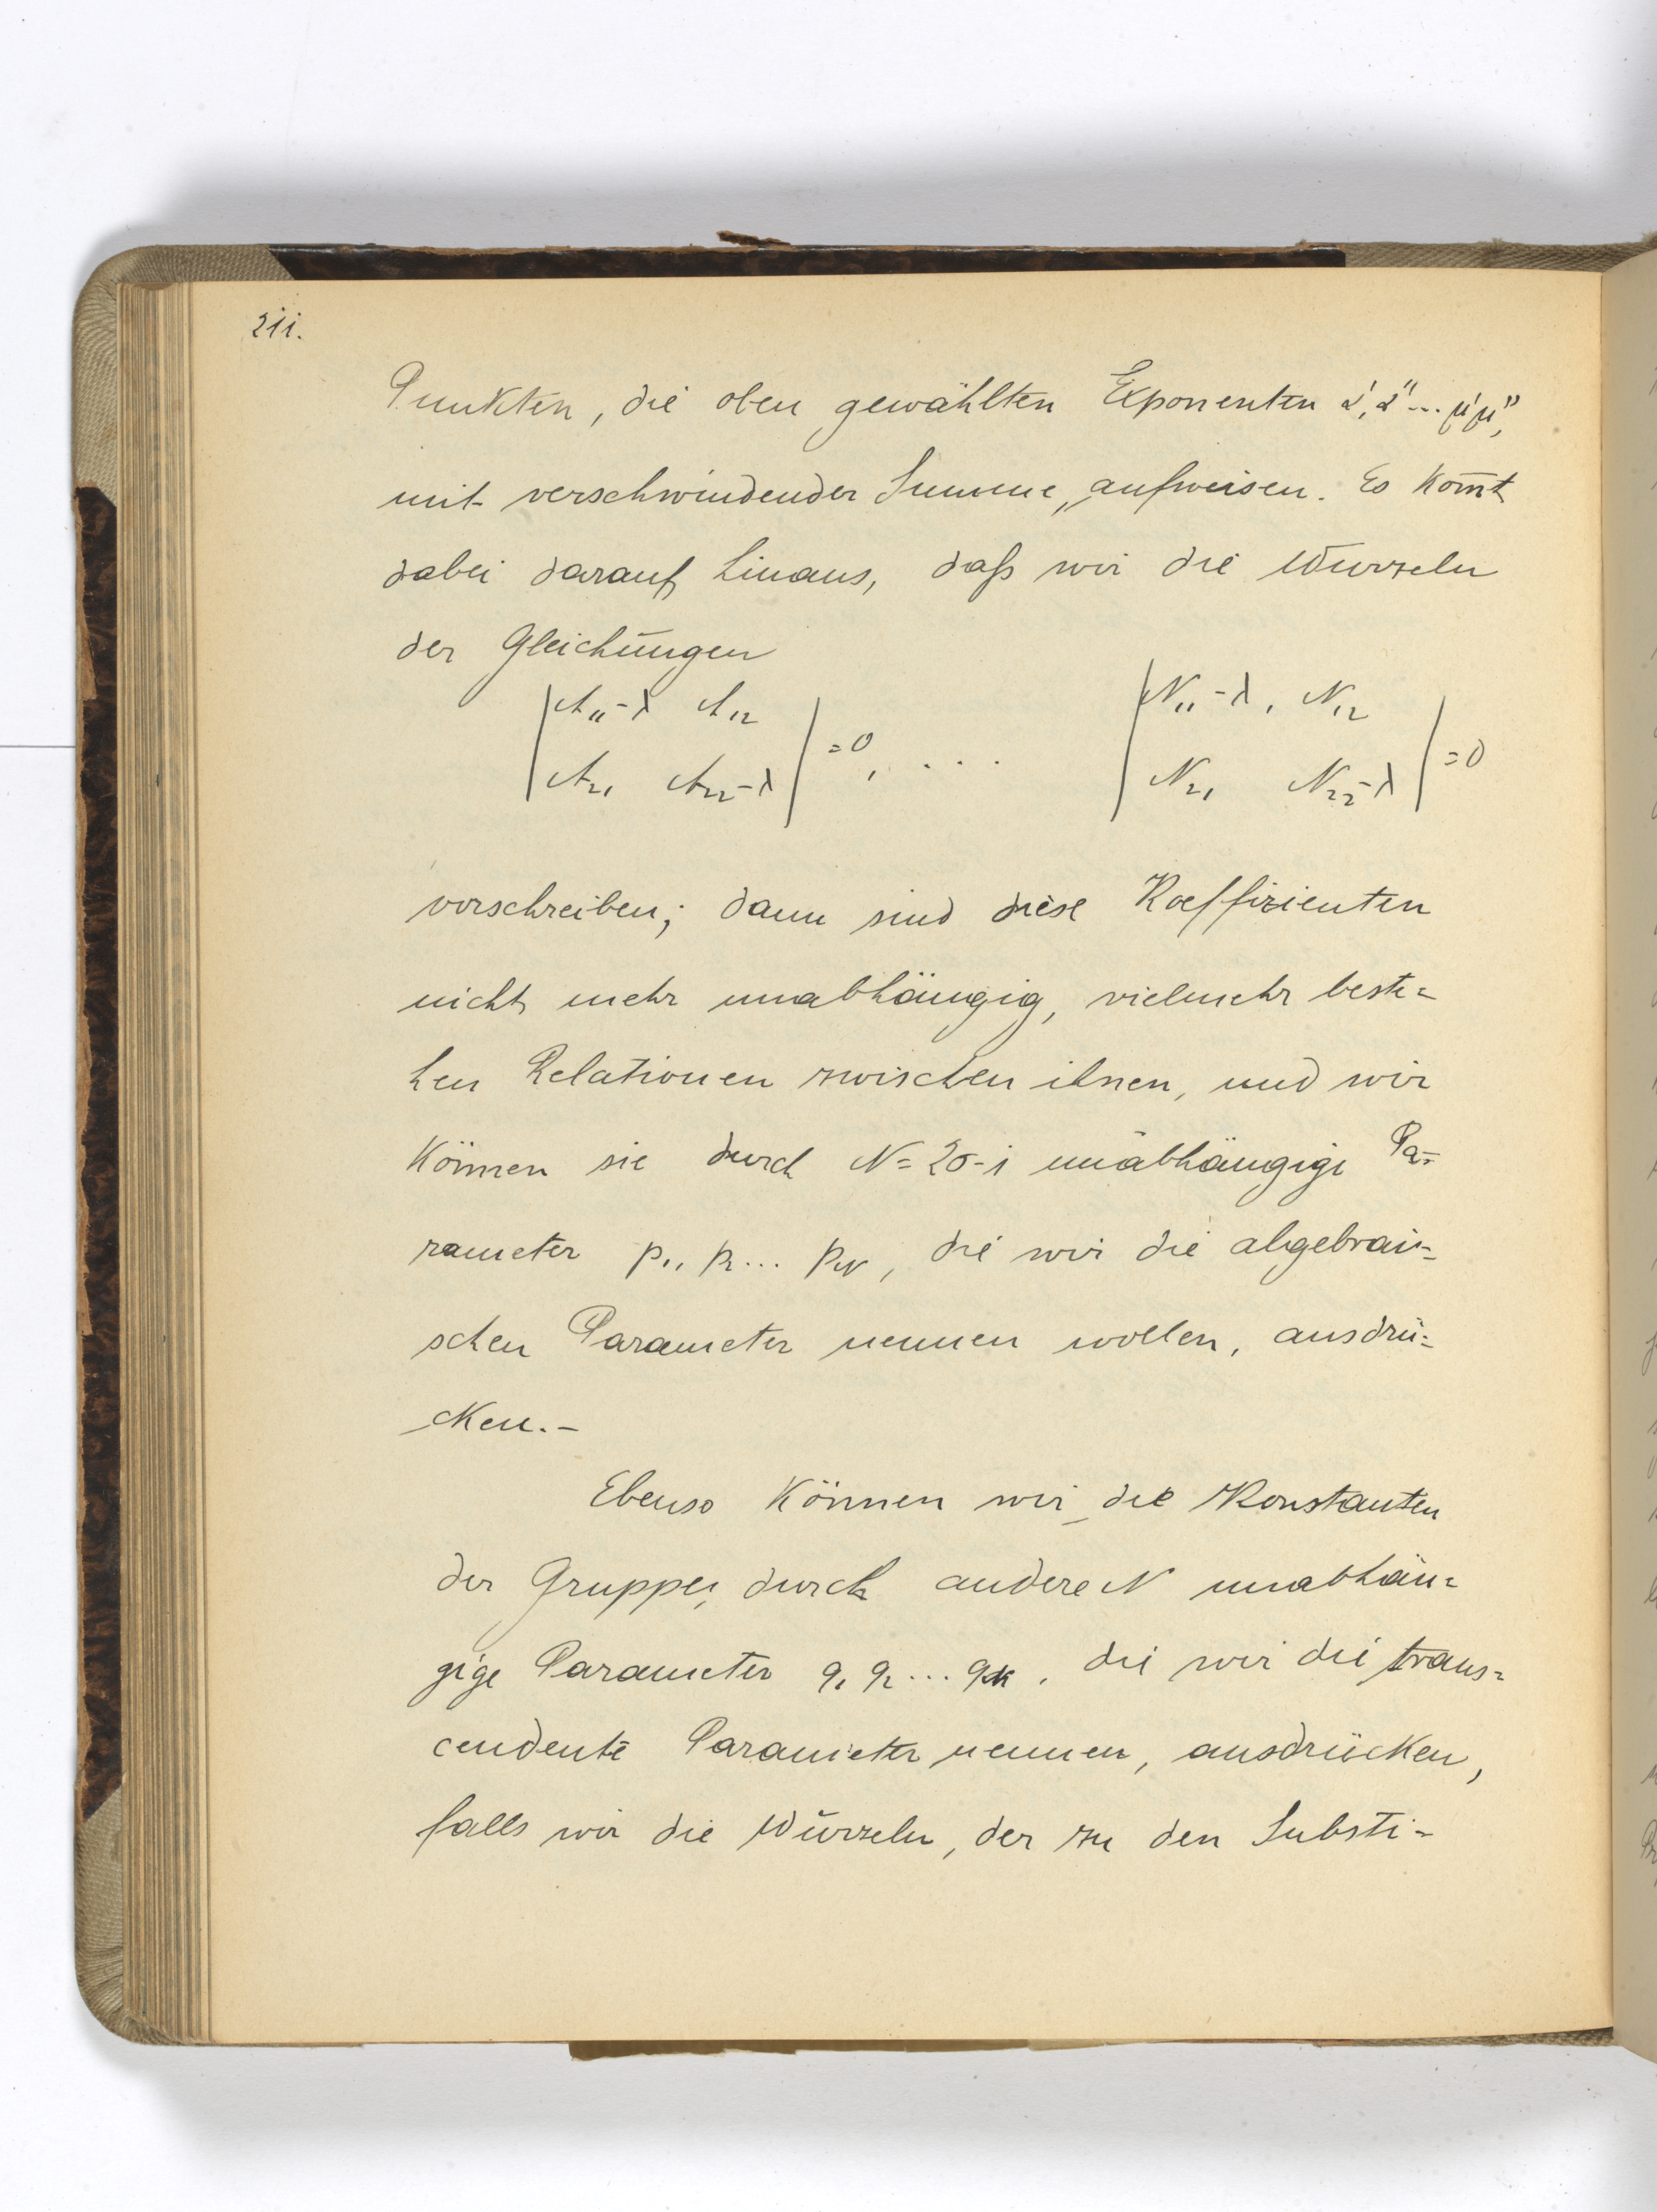 211.
Punkten, die oben gewählten Exponenten α', α''... μ'μ'',
mit verschwindender Summe, aufweisen. Es kom̄t
dabei darauf hinaus, daß wir die Wurzeln
der Gleichungen
|A₁₁-λ A₁₂| |N₁₁-λ, N₁₂|
|A₂₁ A₂₂-λ| =0, . . . |N₂₁ N₂₂-λ| =0
vorschreiben; dann sind diese Koeffizienten
nicht mehr unabhängig, vielmehr beste=
hen Relationen zwischen ihnen, und wir
können sie durch N=2σ-1 unabhängige Pa=
rameter p₁, p₂... p_N, die wir die algebrai=
schen Parameter nennen wollen, ausdrü=
cken.-
Ebenso können wir die Konstanten
der Gruppe, durch andere N unabhän=
gige Parameter q₁ q₂... q_N, die wir die trans=
cendente Parameter nennen, ausdrücken,
falls wir die Wurzeln, der zu den Substi-